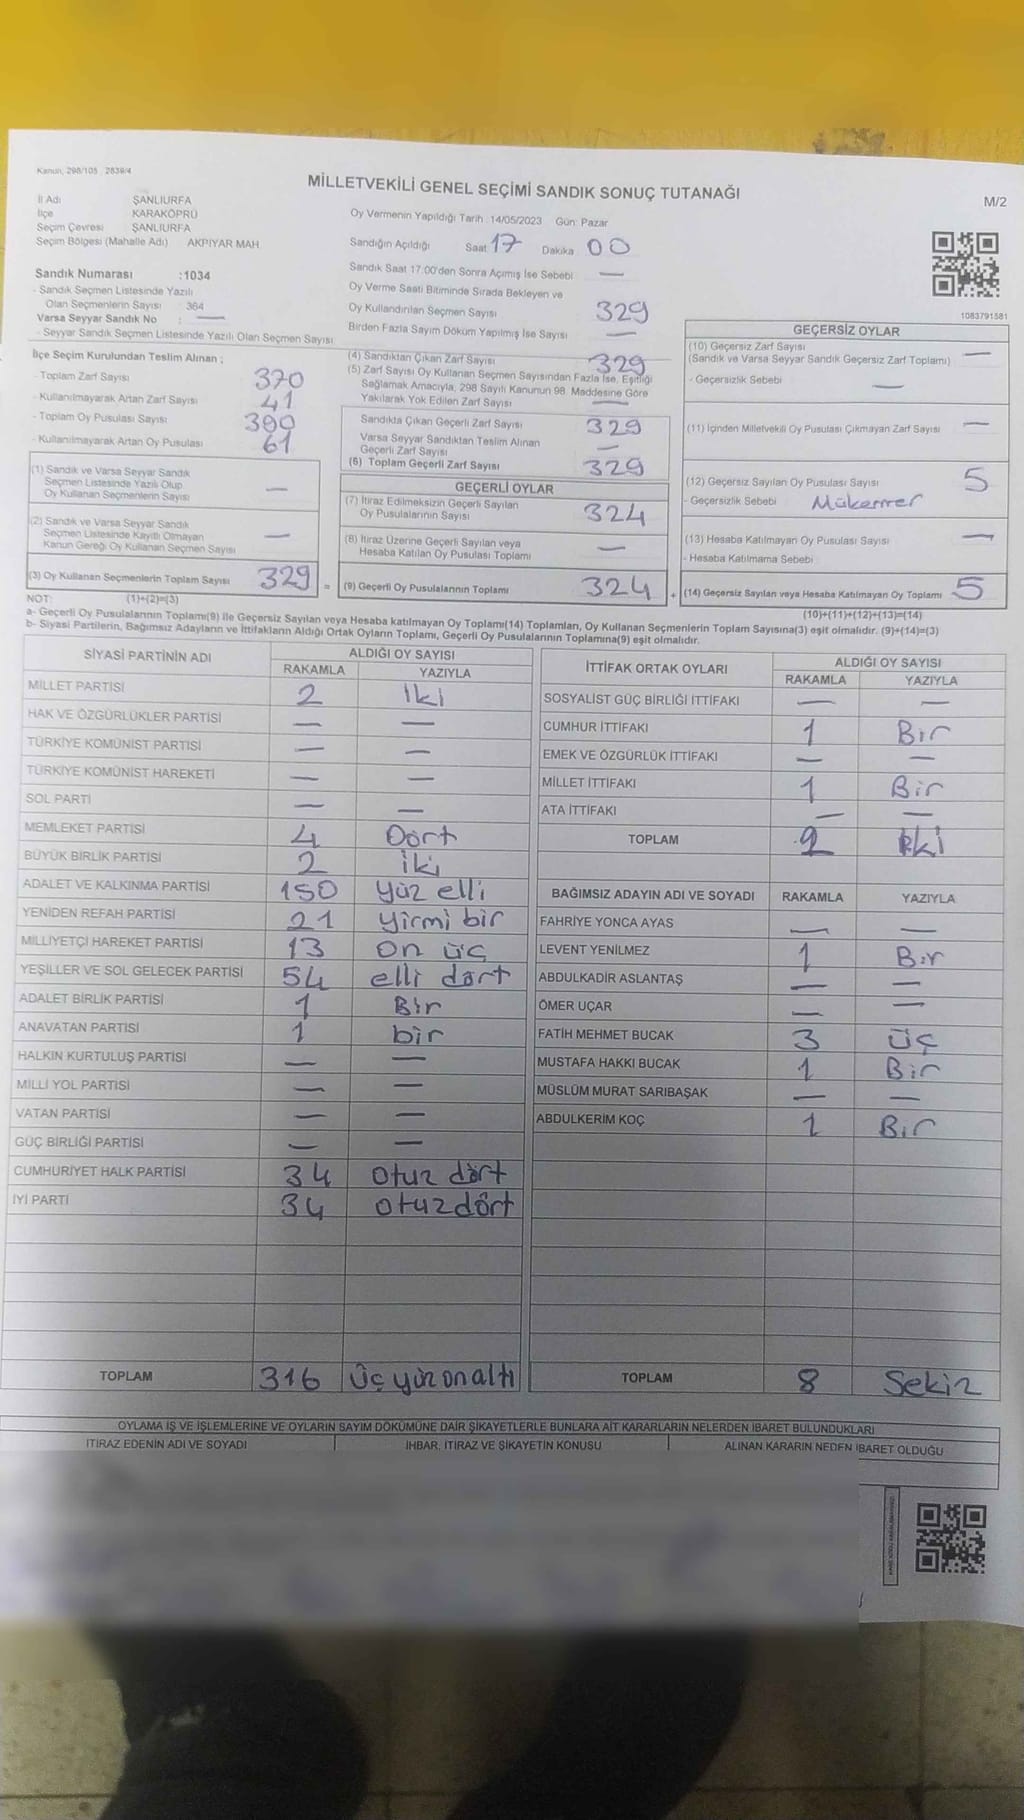 Kanun, 298/105 2839/4
MİLLETVEKİLİ GENEL SEÇİMİ SANDIK SONUÇ TUTANAĞI
M/2
İl Adı ŞANLIURFA
İlçe KARAKÖPRÜ
Seçim Çevresi ŞANLIURFA
Seçim Bölgesi (Mahalle Adı) AKPIYAR MAH.
Sandık Numarası :1034
- Sandık Seçmen Listesinde Yazılı
Olan Seçmenlerin Sayısı : 364
Varsa Seyyar Sandık No : —
- Seyyar Sandık Seçmen Listesinde Yazılı Olan Seçmen Sayısı
Oy Vermenin Yapıldığı Tarih :14/05/2023 Gün: Pazar
Sandığın Açıldığı Saat 17 Dakika 00
Sandık Saat 17:00'den Sonra Açılmış İse Sebebi —
Oy Verme Saati Bitiminde Sırada Bekleyen ve
Oy Kullandırılan Seçmen Sayısı 329
Birden Fazla Sayım Döküm Yapılmış İse Sayısı —
1083791581
İlçe Seçim Kurulundan Teslim Alınan ;
- Toplam Zarf Sayısı 370
- Kullanılmayarak Artan Zarf Sayısı 41
- Toplam Oy Pusulası Sayısı 390
- Kullanılmayarak Artan Oy Pusulası 61
(1) Sandık ve Varsa Seyyar Sandık
Seçmen Listesinde Yazılı Olup
Oy Kullanan Seçmenlerin Sayısı —
(2) Sandık ve Varsa Seyyar Sandık
Seçmen Listesinde Kayıtlı Olmayan
Kanun Gereği Oy Kullanan Seçmen Sayısı —
(3) Oy Kullanan Seçmenlerin Toplam Sayısı 329 =
(4) Sandıktan Çıkan Zarf Sayısı 329
(5) Zarf Sayısı Oy Kullanan Seçmen Sayısından Fazla İse, Eşitliği
Sağlamak Amacıyla, 298 Sayılı Kanunun 98. Maddesine Göre
Yakılarak Yok Edilen Zarf Sayısı —
Sandıkta Çıkan Geçerli Zarf Sayısı 329
Varsa Seyyar Sandıktan Teslim Alınan
Geçerli Zarf Sayısı —
(6) Toplam Geçerli Zarf Sayısı 329
GEÇERLİ OYLAR
(7) İtiraz Edilmeksizin Geçerli Sayılan
Oy Pusulalarının Sayısı 324
(8) İtiraz Üzerine Geçerli Sayılan veya
Hesaba Katılan Oy Pusulası Toplamı —
(9) Geçerli Oy Pusulalarının Toplamı 324 +
GEÇERSİZ OYLAR
(10) Geçersiz Zarf Sayısı
(Sandık ve Varsa Seyyar Sandık Geçersiz Zarf Toplamı) —
- Geçersizlik Sebebi —
(11) İçinden Milletvekili Oy Pusulası Çıkmayan Zarf Sayısı —
(12) Geçersiz Sayılan Oy Pusulası Sayısı 5
- Geçersizlik Sebebi Mükerrer
(13) Hesaba Katılmayan Oy Pusulası Sayısı —
- Hesaba Katılmama Sebebi
(14) Geçersiz Sayılan veya Hesaba Katılmayan Oy Toplamı 5
NOT: (1)+(2)=(3)
(10)+(11)+(12)+(13)=(14)
a- Geçerli Oy Pusulalarının Toplamı(9) ile Geçersiz Sayılan veya Hesaba katılmayan Oy Toplamı(14) Toplamları, Oy Kullanan Seçmenlerin Toplam Sayısına(3) eşit olmalıdır. (9)+(14)=(3)
b- Siyasi Partilerin, Bağımsız Adayların ve İttifakların Aldığı Ortak Oyların Toplamı, Geçerli Oy Pusulalarının Toplamına(9) eşit olmalıdır.
SİYASİ PARTİNİN ADI ALDIĞI OY SAYISI
RAKAMLA YAZIYLA
MİLLET PARTİSİ 2 iki
HAK VE ÖZGÜRLÜKLER PARTİSİ — —
TÜRKİYE KOMÜNİST PARTİSİ — —
TÜRKİYE KOMÜNİST HAREKETİ — —
SOL PARTİ — —
MEMLEKET PARTİSİ 4 Dört
BÜYÜK BİRLİK PARTİSİ 2 iki
ADALET VE KALKINMA PARTİSİ 150 yüz elli
YENİDEN REFAH PARTİSİ 21 yirmi bir
MİLLİYETÇİ HAREKET PARTİSİ 13 on üç
YEŞİLLER VE SOL GELECEK PARTİSİ 54 elli dört
ADALET BİRLİK PARTİSİ 1 Bir
ANAVATAN PARTİSİ 1 bir
HALKIN KURTULUŞ PARTİSİ — —
MİLLİ YOL PARTİSİ — —
VATAN PARTİSİ — —
GÜÇ BİRLİĞİ PARTİSİ — —
CUMHURİYET HALK PARTİSİ 34 otuz dört
İYİ PARTİ 34 otuz dört
TOPLAM 316 Üç yüz on altı
İTTİFAK ORTAK OYLARI ALDIĞI OY SAYISI
RAKAMLA YAZIYLA
SOSYALİST GÜÇ BİRLİĞİ İTTİFAKI — —
CUMHUR İTTİFAKI 1 Bir
EMEK VE ÖZGÜRLÜK İTTİFAKI — —
MİLLET İTTİFAKI 1 Bir
ATA İTTİFAKI — —
TOPLAM 2 iki
BAĞIMSIZ ADAYIN ADI VE SOYADI RAKAMLA YAZIYLA
FAHRİYE YONCA AYAS — —
LEVENT YENİLMEZ 1 Bir
ABDULKADİR ASLANTAŞ — —
ÖMER UÇAR — —
FATİH MEHMET BUCAK 3 üç
MUSTAFA HAKKI BUCAK 1 Bir
MÜSLÜM MURAT SARIBAŞAK — —
ABDULKERİM KOÇ 1 Bir
TOPLAM 8 Sekiz
OYLAMA İŞ VE İŞLEMLERİNE VE OYLARIN SAYIM DÖKÜMÜNE DAİR ŞİKAYETLERLE BUNLARA AİT KARARLARIN NELERDEN İBARET BULUNDUKLARI
İTİRAZ EDENİN ADI VE SOYADI İHBAR, İTİRAZ VE ŞİKAYETİN KONUSU ALINAN KARARIN NEDEN İBARET OLDUĞU